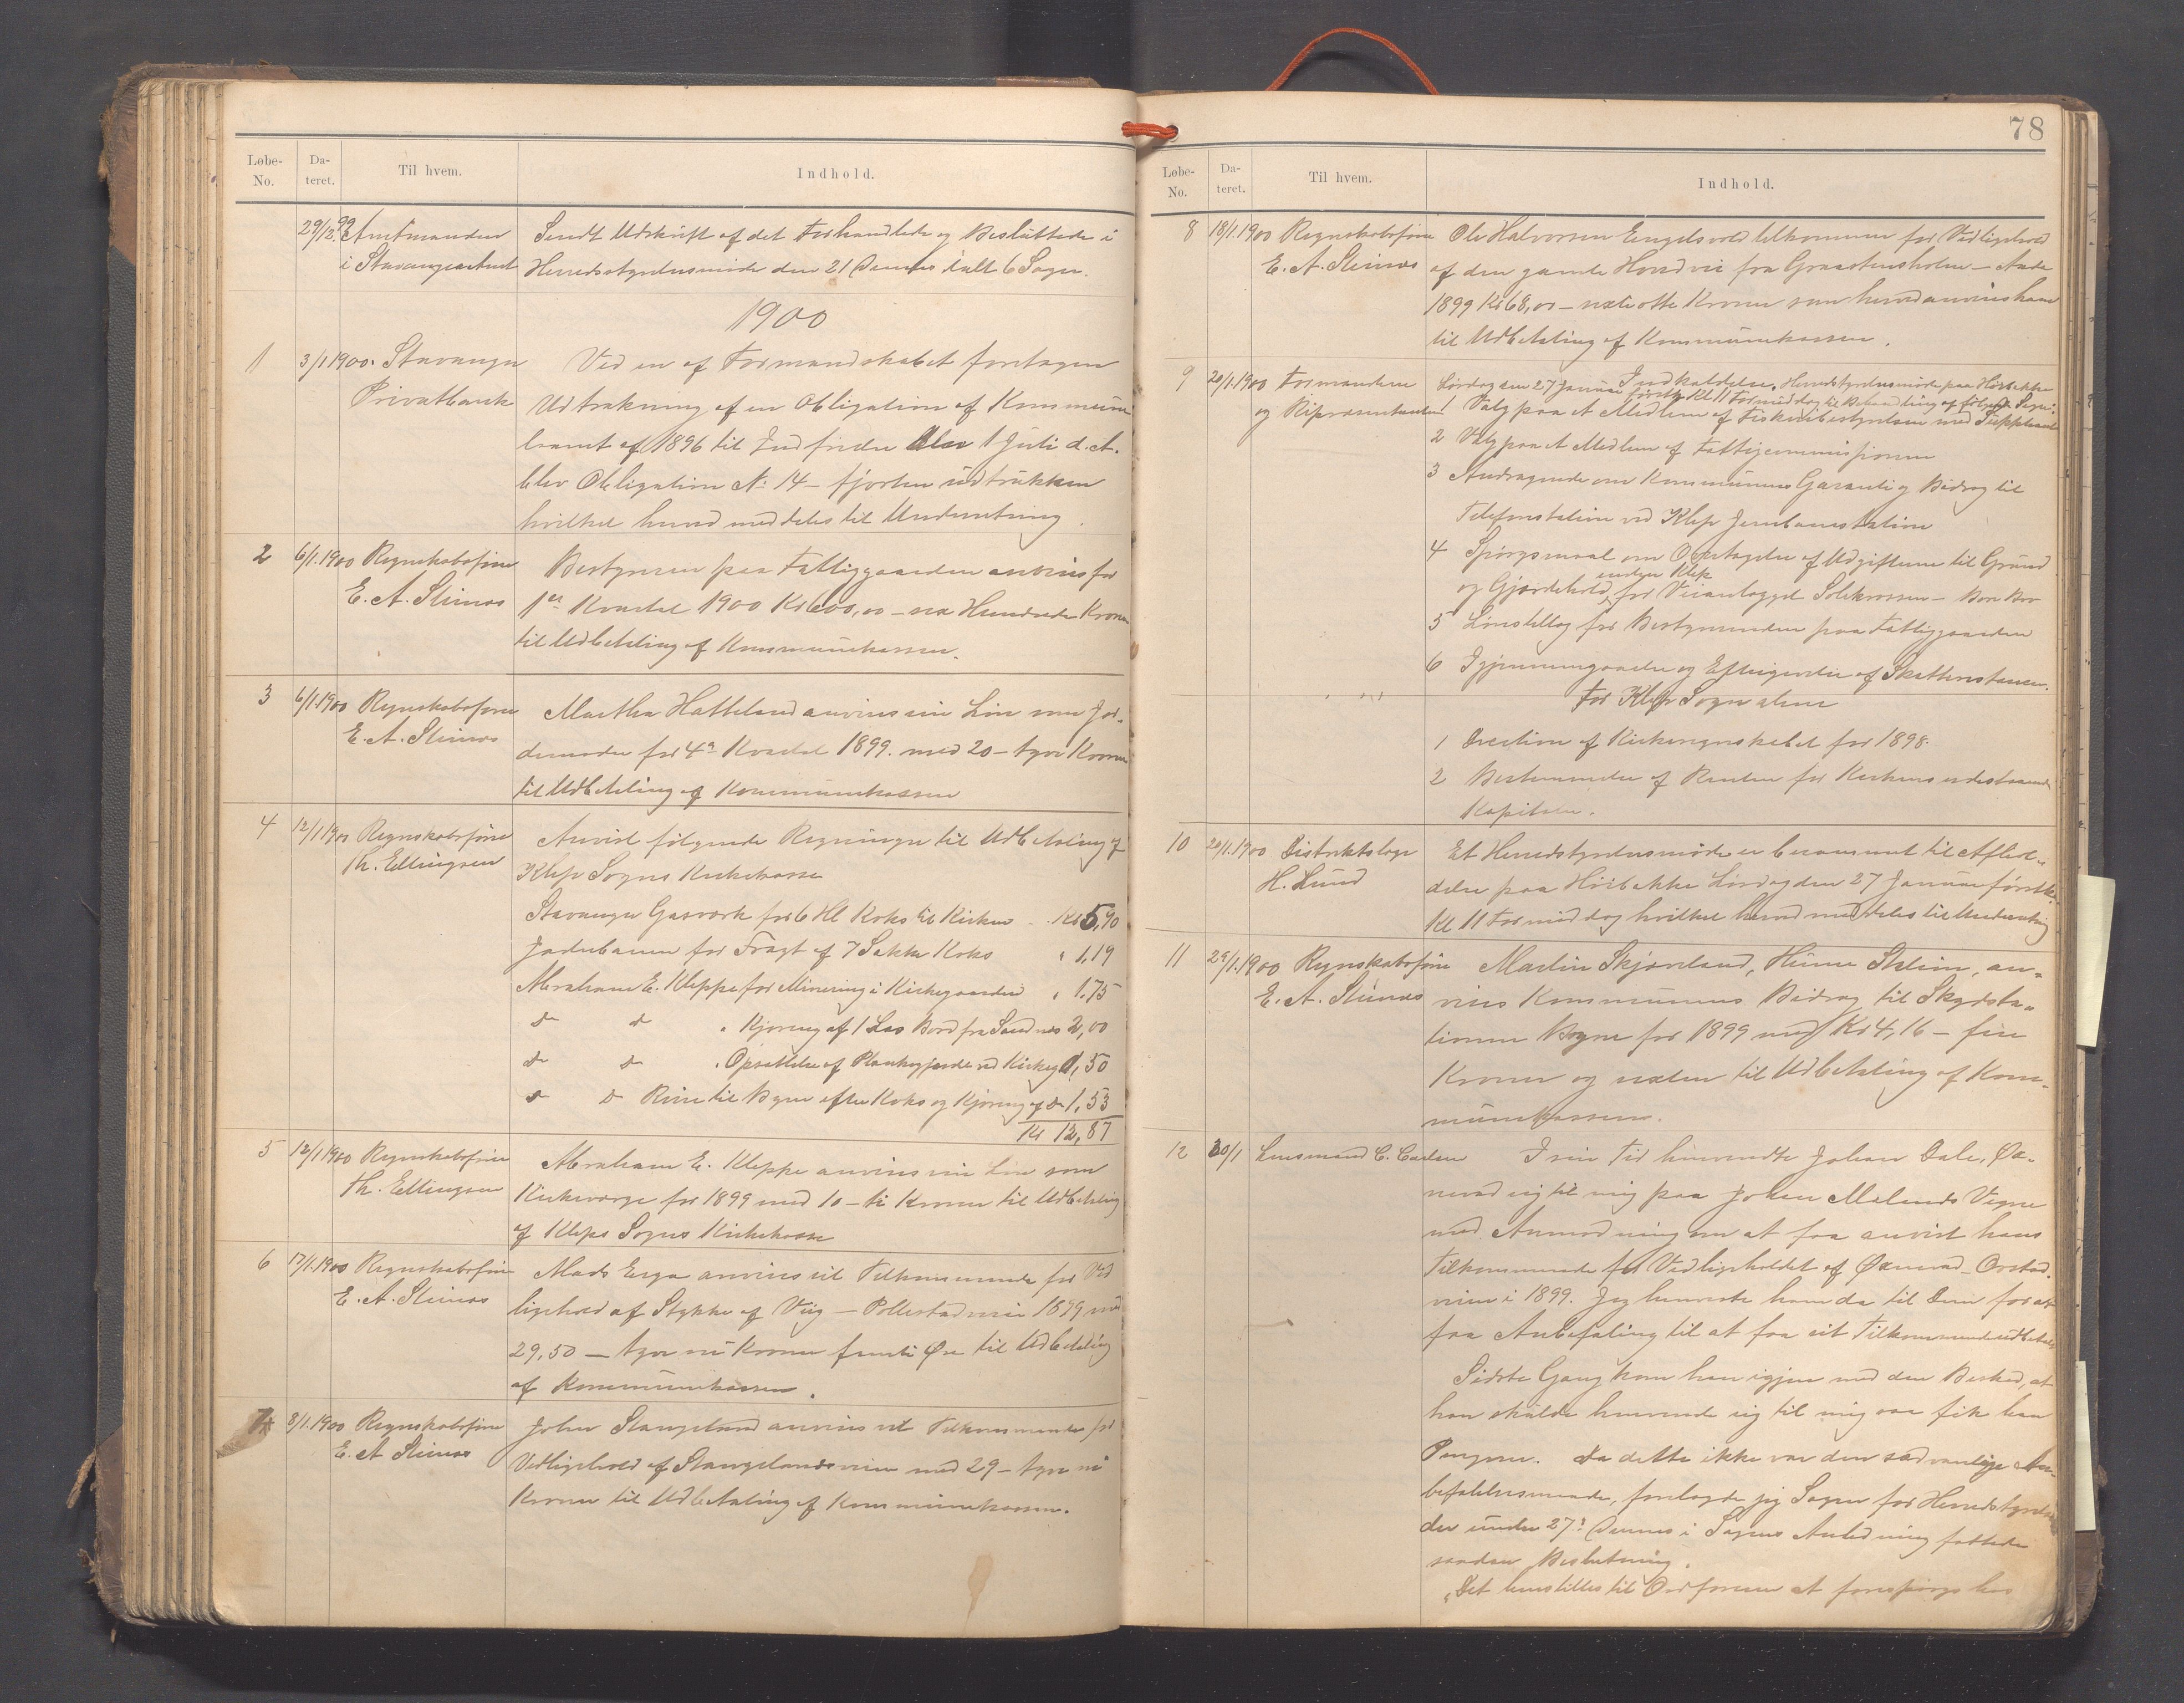 Løbe-No. Da-teret. Til hvem. Indhold.
29/12 99 Amtmanden i Stavanger Amt
Sendt Udskrift af det Forhandlede og Besluttede i
Herredsstyrelsesmøde den 21 Dennes ialt 6 Sager.
1900
1 3/1 1900. Stavanger Privatbank
Ved en af Formandskabet foretagen
Udtrækning af en Obligation af Kommune
laanet af 1896 til Indfrielse den 1 Juli d. A.
blev Obligation No 14 - fjorten udtrukken
hvilket herved meddeles til Underretning.
2 6/1.1900 Regnskabsfører E. A. Stimos
Bestyreren paa Fattiggaarden anvises for
1ste Kvartal 1900 Kr 600,00 - sex Hundrede Kroner
til Udbetaling af Kommunekassen.
3 6/1.1900 Regnskabsfører E. A. Stimos
Martha Hatteland anvises sin Løn som Jor-
demoder for 4de Kvartal 1899. med 20 - tyve Kroner
til Udbetaling af Kommunekassen
4 12/1 1900 Regnskabsfører Th. Ellingsen
Anvist følgende Regninger til Udbetaling af
Klep Sogns Kirkekasse
Stavanger Gasværk for 6 Hl Koks til Kirken - Kr 5,90
Jæderbanen for Fragt af 7 Sække Koks " 1,19
Abraham E. Kleppe for Minering i Kirkegaarden " 1,75
do do " Kjøring af 1 Las Bord fra Sandnes 2,00
do do " Opsættelse af Plankegjerde ved Kirkeg 1,50
do do Reise til Bryne efter Koks og Kjøring af do 1,53
Kr 12,87
5 12/1 1900 Regnskabsfører Th. Ellingsen
Abraham E. Kleppe anvises sin Løn som
Kirkeværge for 1899 med 10 - ti Kroner til Udbetaling
af Kleps Sogns Kirkekasse
6 17/1.1900 Regnskabsfører E. A. Stimos
Mads Erga anvises sit Tilkommende for Ved
ligehold af Stykke af Viig - Pollestadveien 1899 med
29,50 - tyve ni Kroner femti Øre til Udbetaling
af Kommunekassen.
7 18/1.1900 Regnskabsfører E. A Stimos
John Stangeland anvises sit Tilkommende for
Vedligehold af Stangelandsveien med 29 - tyve ni
Kroner til Udbetaling af Kommunekassen.
78
Løbe-No. Da-teret. Til hvem. Indhold.
8 18/1.1900 Regnskabsfører E. A. Stimos
Ole Halvorsen Engelsvold tilkommer for Vedligehold
af den gamle Hovedvei fra Graasteinsholen - Anda
1899 Kr 68,00 - sexti otte Kroner som herved anvises ham
til Udbetaling af Kommunekassen.
9 20/1.1900 Formændene og Repræsentanterne
Indkaldelse. Herredsstyrelsesmøde paa Hørbakke
Lørdag den 27 Januar førstk. Kl 11 Formiddag til Behandling af følgende Sager:
1 Valg paa et Medlem af Fiskeribestyrelsen med Suppleant
2 Valg paa et Medlem af Fattigcommissionen
3 Andragende om Kommunens Garanti og Bidrag til
Telefonstation ved Klep Jernbanestation
4 Spørgsmaal om Overtagelse af Udgifterne til Grund
og Gjærdehold inden Klep for Veianlægget Solekrossen - Bore Bro
5 Lønstillæg for Bestyrerinden paa Fattiggaarden
6 Igjennemgaaelse og Eftergivelse af Skatterestancer.
For Klep Sogn alene
1 Decision af Kirkeregnskabet for 1898.
2 Bestemmelse af Renten for Kirkens indestaaende
Kapitaler.
10 20/1.1900 Distriktslæge H. Lund
Et Herredsstyrelsesmøde er berammet til Afhol-
delse paa Hørbakke Lørdag den 27 Januar førstk.
Kl 11 Formiddag hvilket herved meddeles til Underretning
11 29/1.1900 Regnskabsfører E. A. Stimos
Martin Skjæveland, Hinna Station, an-
vises Kommunens Bidrag til Skydssta-
tionen Bryne for 1899 med Kr 4,16 - fire
Kroner og sexten til Udbetaling af Kom-
munekassen.
12 30/1 Lensmand C. Carlsen
I sin Tid henvendte Johan Dale, Øx-
nevad sig til mig paa John Melands Vegne
med Anmodning om at faa anvist hans
Tilkommende for Vedligeholdet af Øxnevad - Orstad-
veien i 1899. Jeg henviste ham da til Dem for at
faa Anbefaling til at faa sit Tilkommende udbetalt
Sidste Gang kom han igjen med den Besked, at
han skulde henvende sig til mig saa fik han
Pengene. Da dette ikke var den sædvanlige An-
befalelsesmaade, forelagde jeg Sagen for Herredsstyrelsen
der under 27de Dennes i Sagens Anledning fattede
saadan Beslutning.
"Det henstilles til Ordføreren at forespørge hos